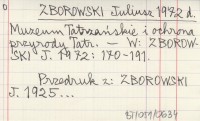 ZBOROWSKI Juliusz 1972 d.
Muzeum Tatrzańskie i ochrona
przyrody Tatr. — W: ZBOROW-
SKI J. 1972: 170-191.
Przedruk z: ZBOROWSKI
J. 1925...